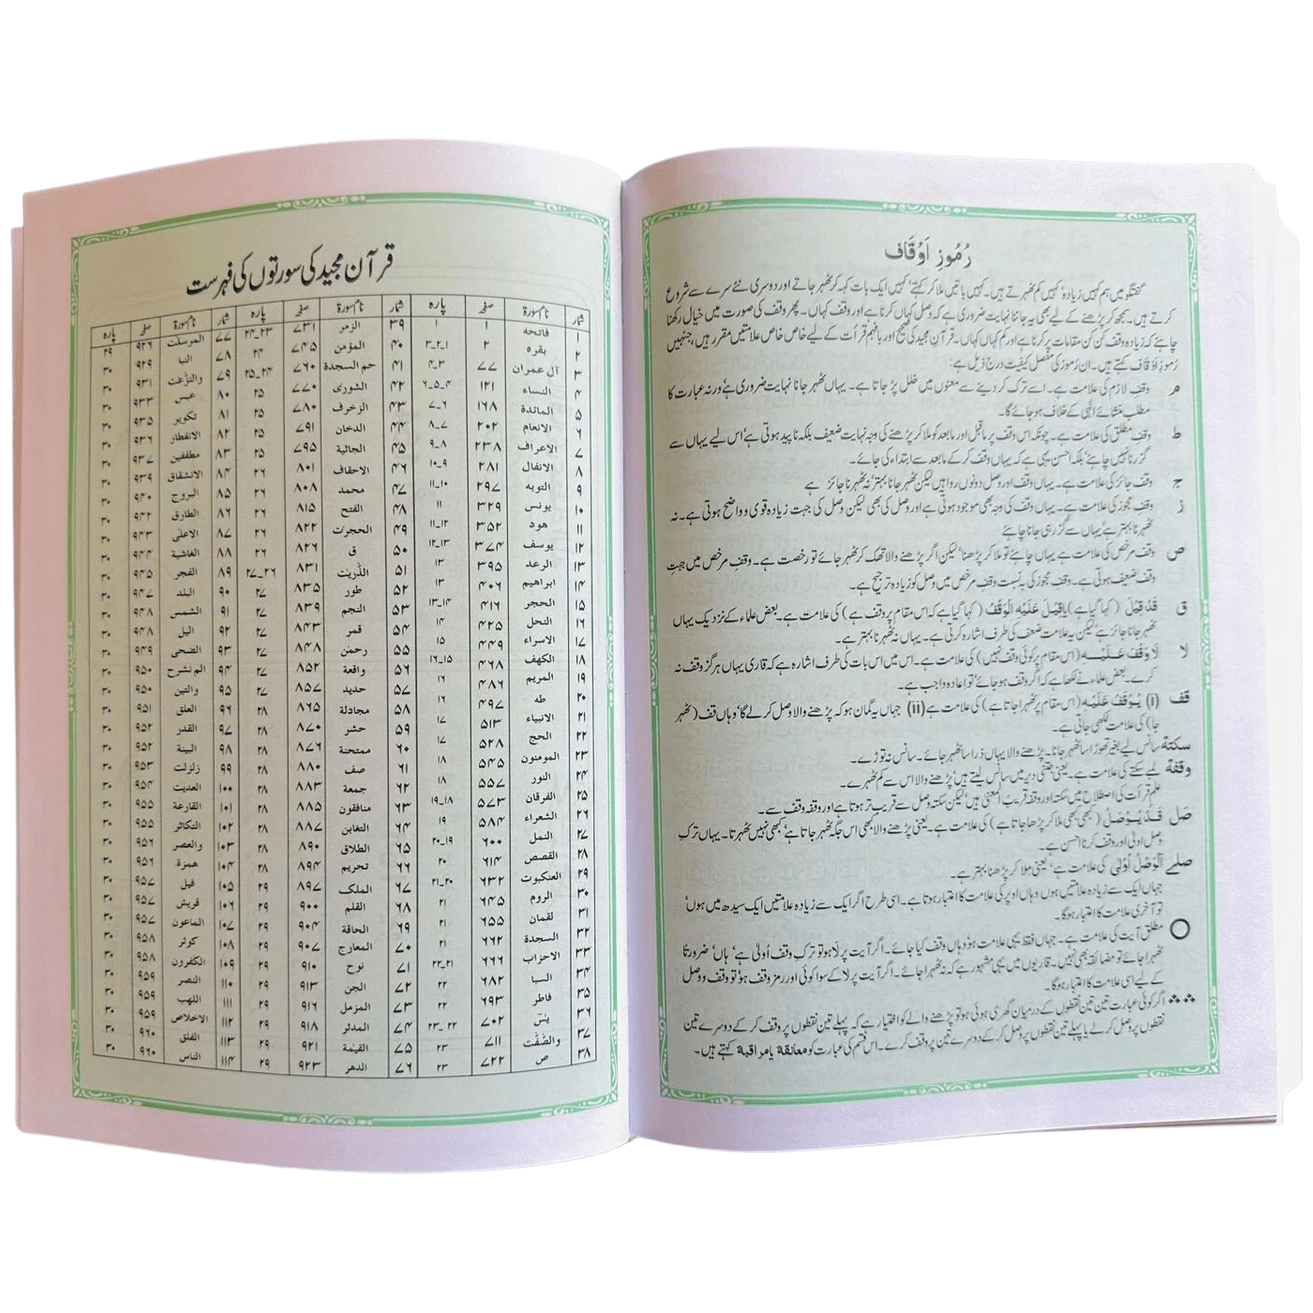 رُمُوزِ اَوْقَاف
گفتگو میں ہم کہیں زیادہ‘ کہیں کم ٹھہرتے ہیں۔ کہیں باتیں ملا کر کہتے‘ کہیں ایک بات کہہ کر ٹھہر جاتے اور دوسری نئے سرے سے شروع
کرتے ہیں۔ سمجھ کر پڑھنے کے لیے بھی یہ جاننا نہایت ضروری ہے کہ وصل کہاں کرنا ہے اور وقف کہاں۔ پھر وقف کی صورت میں خیال رکھنا
چاہئے کہ زیادہ وقف کن کن مقامات پر کرنا ہے اور کم کہاں کہاں۔ قرآن مجید کی صحیح اور بافہم قرأت کے لیے خاص خاص علامتیں مقرر ہیں‘ جنہیں
رُموزِ اوقاف کہتے ہیں۔ ان رُموز کی مفصل کیفیت درج ذیل ہے:
م وقفِ لازم کی علامت ہے۔ اسے ترک کر دینے سے معنوں میں خلل پڑ جاتا ہے۔ یہاں ٹھہر جانا نہایت ضروری ہے‘ ورنہ عبارت کا
مطلب منشائے الٰہی کے خلاف ہو جائے گا۔
ط وقفِ مطلق کی علامت ہے۔ چونکہ اس وقف پر ماقبل اور مابعد کو ملا کر پڑھنے کی وجہ نہایت ضعیف بلکہ ناپید ہوتی ہے‘ اس لیے یہاں سے
گزرنا نہیں چاہئے‘ بلکہ احسن یہی ہے کہ یہاں وقف کر کے مابعد سے ابتداء کی جائے۔
ج وقفِ جائز کی علامت ہے۔ یہاں وقف اور وصل دونوں روا ہیں لیکن ٹھہر جانا بہتر‘ نہ ٹھہرنا جائز ہے
ز وقفِ مجوز کی علامت ہے۔ یہاں وقف کی وجہ بھی موجود ہوتی ہے اور وصل کی بھی لیکن وصل کی جہت زیادہ قوی و واضح ہوتی ہے۔ نہ
ٹھہرنا بہتر ہے‘ یہاں سے گزر ہی جانا چاہئے
ص وقفِ مرخص کی علامت ہے یہاں چاہئے تو ملا کر پڑھنا‘ لیکن اگر پڑھنے والا تھک کر ٹھہر جائے تو رخصت ہے۔ وقفِ مرخص میں جہتِ
وقف ضعیف ہوتی ہے۔ وقفِ مجوز کی بہ نسبت وقفِ مرخص میں وصل کو زیادہ ترجیح ہے۔
ق قَدْ قِیْلَ (کہا گیا ہے) یا قِیْلَ عَلَیْهِ الْوَقْفُ (کہا گیا ہے کہ اس مقام پر وقف ہے) کی علامت ہے۔ بعض علماء کے نزدیک یہاں
ٹھہر جانا جائز ہے‘ لیکن یہ علامت ضعف کی طرف اشارہ کرتی ہے۔ یہاں نہ ٹھہرنا بہتر ہے۔
لا لَا وَقْفَ عَلَیْـــهِ (اس مقام پر کوئی وقف نہیں) کی علامت ہے۔ اس میں اس بات کی طرف اشارہ ہے کہ قاری یہاں ہرگز وقف نہ
کرے۔ بعض علماء نے لکھا ہے کہ اگر وقف ہو جائے‘ تو اعادہ واجب ہے۔
قف (i) یُوْقَفُ عَلَیْهِ (اس مقام پر ٹھہرا جاتا ہے) کی علامت ہے (ii) جہاں یہ گمان ہو کہ پڑھنے والا وصل کرلے گا‘ وہاں قف (ٹھہر
جا) کی علامت لکھی جاتی ہے۔
سکتة سانس لیے بغیر تھوڑا سا ٹھہر جانا۔ پڑھنے والا یہاں ذرا سا ٹھہر جائے۔ سانس نہ توڑے۔
وقفة لمبے سکتے کی علامت ہے۔ یعنی جتنی دیر میں سانس لیتے ہیں‘ پڑھنے والا اس سے کم ٹھہرے۔
علم قرأت کی اصطلاح میں سکتہ اور وقفہ قریب المعنیٰ ہیں‘ لیکن سکتہ وصل سے قریب تر ہوتا ہے اور وقفہ وقف سے۔
صل قَــدْ یُــوْصَلُ (کبھی کبھی ملا کر پڑھا جاتا ہے) کی علامت ہے۔ یعنی پڑھنے والا کبھی اس جگہ ٹھہر جاتا ہے‘ کبھی نہیں ٹھہرتا۔ یہاں ترکِ
وصل اولیٰ اور وقف کرنا احسن ہے۔
صلے اَلْوَصْلُ اَوْلٰی کی علامت ہے‘ یعنی ملا کر پڑھنا بہتر ہے۔
جہاں ایک سے زیادہ علامتیں ہوں وہاں اوپر کی علامت کا اعتبار ہوتا ہے۔ اسی طرح اگر ایک سے زیادہ علامتیں ایک سیدھ میں ہوں‘
تو آخری علامت کا اعتبار ہوگا۔
○ مطلق آیت کی علامت ہے۔ جہاں فقط یہی علامت ہو‘ وہاں وقف کیا جائے۔ اگر آیت پر لا ہو تو ترکِ وقف اَولیٰ ہے‘ ہاں‘ ضرورتاً
ٹھہرا جائے تو مضائقہ بھی نہیں۔ قاریوں میں یہی مشہور ہے کہ نہ ٹھہرا جائے۔ اگر آیت پر لا کے سوا کوئی اور رمزِ وقف ہو‘ تو وقف و وصل
کے لیے اسی علامت کا اعتبار ہوگا۔
∴ ∴ اگر کوئی عبارت تین تین نقطوں کے درمیان گھری ہوئی ہو تو پڑھنے والے کو اختیار ہے کہ پہلے تین نقطوں پر وقف کر کے دوسرے تین
نقطوں پر وصل کرلے یا پہلے تین نقطوں پر وصل کر کے دوسرے تین پر وقف کرے۔ اس قسم کی عبارت کو معانقة یا مراقبة کہتے ہیں۔
قرآن مجید کی سورتوں کی فہرست
شمار نام سورۃ صفحہ پارہ شمار نام سورۃ صفحہ پارہ شمار نام سورۃ صفحہ پارہ
۱ فاتحه ۱ ۱ ۳۹ الزمر ۷۳۱ ۲۳-۲۴ ۷۷ المرسلت ۹۲۶ ۲۹
۲ بقره ۲ ۱-۲-۳ ۴۰ المؤمن ۷۴۵ ۲۴ ۷۸ النبا ۹۲۹ ۳۰
۳ آل عمران ۷۷ ۳-۴ ۴۱ حم السجدة ۷۶۰ ۲۴-۲۵ ۷۹ والنزعت ۹۳۱ ۳۰
۴ النساء ۱۲۱ ۴-۵-۶ ۴۲ الشوری ۷۷۰ ۲۵ ۸۰ عبس ۹۳۳ ۳۰
۵ المائدة ۱۶۸ ۶-۷ ۴۳ الزخرف ۷۸۰ ۲۵ ۸۱ تکویر ۹۳۵ ۳۰
۶ الانعام ۲۰۲ ۷-۸ ۴۴ الدخان ۷۹۱ ۲۵ ۸۲ الانفطار ۹۳۶ ۳۰
۷ الاعراف ۲۳۸ ۸-۹ ۴۵ الجاثیة ۷۹۵ ۲۵ ۸۳ مطففین ۹۳۷ ۳۰
۸ الانفال ۲۸۱ ۹-۱۰ ۴۶ الاحقاف ۸۰۱ ۲۶ ۸۴ الانشقاق ۹۳۹ ۳۰
۹ التوبه ۲۹۷ ۱۰-۱۱ ۴۷ محمد ۸۰۸ ۲۶ ۸۵ البروج ۹۴۰ ۳۰
۱۰ یونس ۳۲۹ ۱۱ ۴۸ الفتح ۸۱۵ ۲۶ ۸۶ الطارق ۹۴۲ ۳۰
۱۱ هود ۳۵۲ ۱۱-۱۲ ۴۹ الحجرٰت ۸۲۲ ۲۶ ۸۷ الاعلٰی ۹۴۳ ۳۰
۱۲ یوسف ۳۷۴ ۱۲-۱۳ ۵۰ ق ۸۲۶ ۲۶ ۸۸ الغاشیة ۹۴۴ ۳۰
۱۳ الرعد ۳۹۵ ۱۳ ۵۱ الذّریٰت ۸۳۱ ۲۶-۲۷ ۸۹ الفجر ۹۴۵ ۳۰
۱۴ ابراهیم ۴۰۶ ۱۳ ۵۲ طور ۸۳۵ ۲۷ ۹۰ البلد ۹۴۷ ۳۰
۱۵ الحجر ۴۱۶ ۱۳-۱۴ ۵۳ النجم ۸۳۹ ۲۷ ۹۱ الشمس ۹۴۸ ۳۰
۱۶ النحل ۴۲۵ ۱۴ ۵۴ قمر ۸۴۳ ۲۷ ۹۲ الیل ۹۴۸ ۳۰
۱۷ الاسراء ۴۴۹ ۱۵ ۵۵ رحمٰن ۸۴۸ ۲۷ ۹۳ الضحی ۹۴۹ ۳۰
۱۸ الکهف ۴۶۸ ۱۵-۱۶ ۵۶ واقعة ۸۵۲ ۲۷ ۹۴ الم نشرح ۹۵۰ ۳۰
۱۹ المریم ۴۸۶ ۱۶ ۵۷ حدید ۸۵۷ ۲۷ ۹۵ والتین ۹۵۰ ۳۰
۲۰ طه ۴۹۷ ۱۶ ۵۸ مجادلة ۸۶۵ ۲۸ ۹۶ العلق ۹۵۱ ۳۰
۲۱ الانبیاء ۵۱۳ ۱۷ ۵۹ حشر ۸۷۰ ۲۸ ۹۷ القدر ۹۵۲ ۳۰
۲۲ الحج ۵۲۸ ۱۷ ۶۰ ممتحنة ۸۷۶ ۲۸ ۹۸ البینة ۹۵۲ ۳۰
۲۳ المومنون ۵۴۵ ۱۸ ۶۱ صف ۸۸۰ ۲۸ ۹۹ زلزلت ۹۵۳ ۳۰
۲۴ النور ۵۵۷ ۱۸ ۶۲ جمعة ۸۸۳ ۲۸ ۱۰۰ العدیت ۹۵۴ ۳۰
۲۵ الفرقان ۵۷۳ ۱۸-۱۹ ۶۳ منافقون ۸۸۵ ۲۸ ۱۰۱ القارعة ۹۵۵ ۳۰
۲۶ الشعراء ۵۸۴ ۱۹ ۶۴ التغابن ۸۸۷ ۲۸ ۱۰۲ التکاثر ۹۵۵ ۳۰
۲۷ النمل ۶۰۰ ۱۹-۲۰ ۶۵ الطلاق ۸۹۰ ۲۸ ۱۰۳ والعصر ۹۵۶ ۳۰
۲۸ القصص ۶۱۴ ۲۰ ۶۶ تحریم ۸۹۴ ۲۸ ۱۰۴ همزة ۹۵۶ ۳۰
۲۹ العنکبوت ۶۳۲ ۲۰-۲۱ ۶۷ الملک ۸۹۷ ۲۹ ۱۰۵ فیل ۹۵۷ ۳۰
۳۰ الروم ۶۴۵ ۲۱ ۶۸ القلم ۹۰۰ ۲۹ ۱۰۶ قریش ۹۵۷ ۳۰
۳۱ لقمان ۶۵۵ ۲۱ ۶۹ الحاقة ۹۰۴ ۲۹ ۱۰۷ الماعون ۹۵۷ ۳۰
۳۲ السجدة ۶۶۲ ۲۱ ۷۰ المعارج ۹۰۷ ۲۹ ۱۰۸ کوثر ۹۵۸ ۳۰
۳۳ الاحزاب ۶۶۶ ۲۱-۲۲ ۷۱ نوح ۹۱۰ ۲۹ ۱۰۹ الکفرون ۹۵۸ ۳۰
۳۴ السبا ۶۸۲ ۲۲ ۷۲ الجن ۹۱۳ ۲۹ ۱۱۰ النصر ۹۵۹ ۳۰
۳۵ فاطر ۶۹۳ ۲۲ ۷۳ المزمل ۹۱۶ ۲۹ ۱۱۱ اللهب ۹۵۹ ۳۰
۳۶ یٰسٓ ۷۰۲ ۲۲-۲۳ ۷۴ المدثر ۹۱۸ ۲۹ ۱۱۲ الاخلاص ۹۵۹ ۳۰
۳۷ والصّٰفّٰت ۷۱۱ ۲۳ ۷۵ القیٰمة ۹۲۱ ۲۹ ۱۱۳ الفلق ۹۶۰ ۳۰
۳۸ ص ۷۲۲ ۲۳ ۷۶ الدهر ۹۲۳ ۲۹ ۱۱۴ الناس ۹۶۰ ۳۰